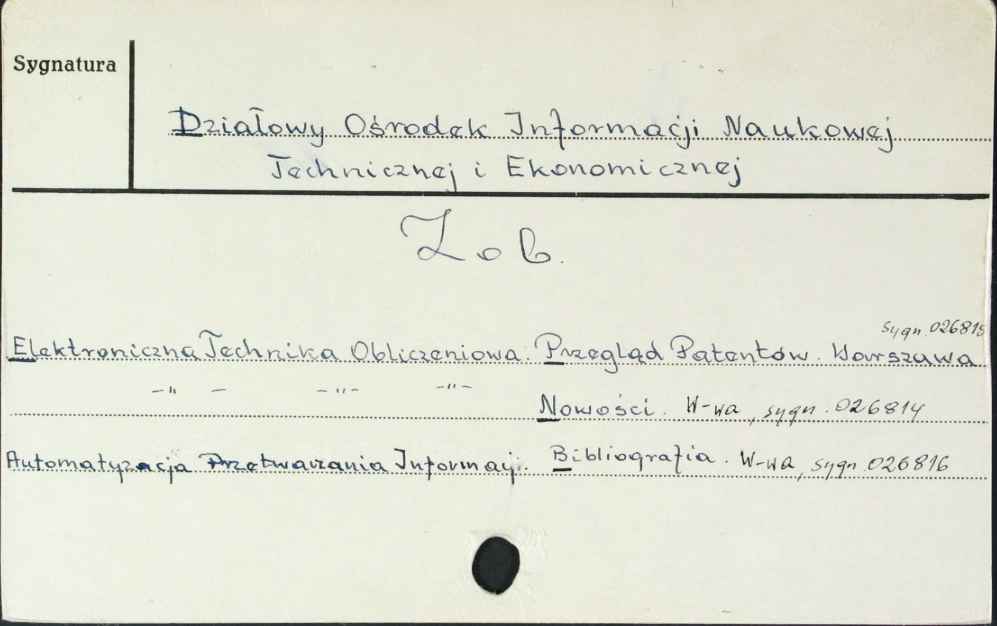 Sygnatura
Działowy Ośrodek Informacji Naukowej
Technicznej i Ekonomicznej
Zob.
sygn. 026815
Elektroniczna Technika Obliczeniowa. Przegląd Patentów. Warszawa
–"– –"– –"– Nowości. W-wa, sygn. 026814
Automatyzacja Przetwarzania Informacji. Bibliografia. W-wa, sygn 026816